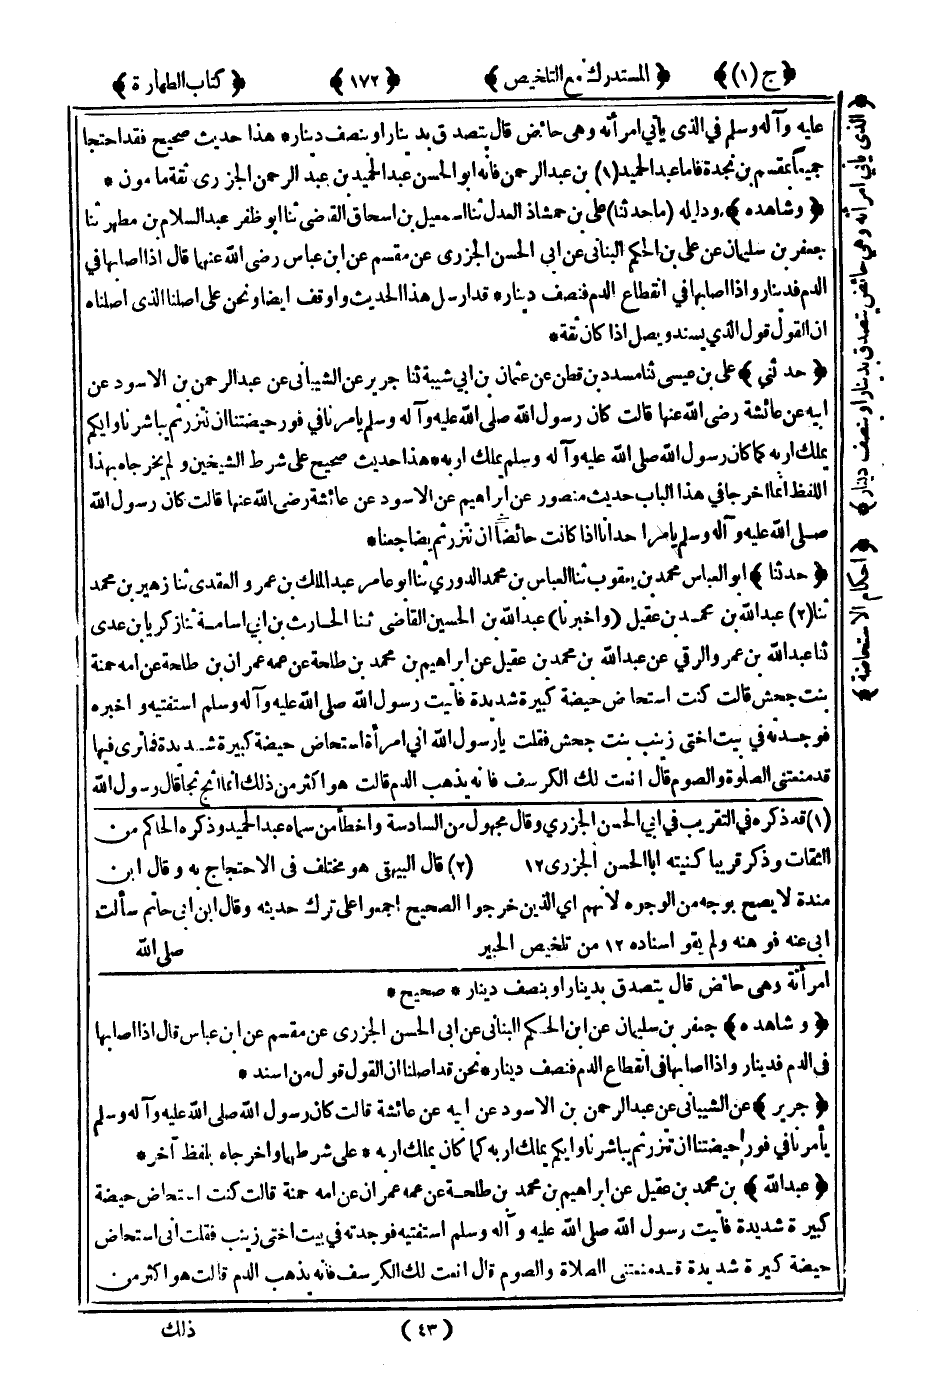 ﴿ ج (١) ﴾ ﴿ المستدرك مع التلخيص ﴾ ﴿ ١٧٢ ﴾ ﴿ كتاب الطهارة ﴾
عليه وآله وسلم في الذى يأتي امرأته وهى حائض قال يتصدق بدينار او بنصف دينار * هذا حديث صحيح فقد احتجا
جميعاً بمقسم بن نجدة فاما عبدالحميد (١) بن عبدالرحمن فانه ابو الحسن عبدالحميد بن عبدالرحمن الجزرى ثقة مأمون *
﴿ وشاهده ﴾ ودليله (ما حدثنا) على بن حمشاذ العدل ثنا اسمعيل بن اسحاق القاضى ثنا ابو ظفر عبدالسلام بن مطهر ثنا
جعفر بن سليمان عن على بن الحكم البنانى عن ابي الحسن الجزرى عن مقسم عن ابن عباس رضى الله عنهما قال اذا اصابها في
الدم فدينار واذا اصابها في انقطاع الدم فنصف دينار * قد ارسل هذا الحديث واوقف ايضا ونحن على اصلنا الذى اصلناه
ان القول قول الذي يسند ويصل اذا كان ثقة *
﴿ حدثني ﴾ على بن عيسى ثنا مسدد بن قطن عن عثمان بن ابي شيبة ثنا جرير عن الشيبانى عن عبدالرحمن بن الاسود عن
ابيه عن عائشة رضى الله عنها قالت كان رسول الله صلى الله عليه وآله وسلم يامرنا في فور حيضتنا ان نتزر ثم يباشرنا وايكم
يملك اربه كما كان رسول الله صلى الله عليه وآله وسلم يملك اربه * هذا حديث صحيح على شرط الشيخين ولم يخرجاه بهذا
اللفظ انما اخرجا في هذا الباب حديث منصور عن ابراهيم عن الاسود عن عائشة رضى الله عنها قالت كان رسول الله
صلى الله عليه وآله وسلم يأمر احدانا اذا كانت حائضاً ان تتزر ثم يضاجعها *
﴿ حدثنا ﴾ ابو العباس محمد بن يعقوب ثنا العباس بن محمد الدوري ثنا ابو عامر عبدالملك بن عمرو العقدى ثنا زهير بن محمد
ثنا (٢) عبدالله بن محمد بن عقيل (واخبرنا) عبدالله بن الحسين القاضى ثنا الحارث بن ابى اسامة ثنا زكريا بن عدى
ثنا عبدالله بن عمرو الرقي عن عبدالله بن محمد بن عقيل عن ابراهيم بن محمد بن طلحة عن عمه عمران بن طلحة عن امه حمنة
بنت جحش قالت كنت استحاض حيضة كبيرة شديدة فأتيت رسول الله صلى الله عليه وآله وسلم استفتيه واخبره
فوجدته في بيت اختى زينب بنت جحش فقلت يارسول الله اني امرأة استحاض حيضة كبيرة شديدة فما ترى فيها
قد منعتنى الصلوة والصوم قال انعت لك الكرسف فانه يذهب الدم قالت هو اكثر من ذلك انما اثج ثجا قال رسول الله
(١) قد ذكره في التقريب في ابي الحسن الجزري وقال مجهول من السادسة واخطأ من سماه عبدالحميد وذكره الحاكم من
الثقات وذكر قريبا كنيته ابا الحسن الجزرى ١٢ (٢) قال البيهقى هو مختلف فى الاحتجاج به وقال ابن
مندة لا يصح بوجه من الوجوه لانهم اي الذين خرجوا الصحيح اجمعوا على ترك حديثه وقال ابن ابى حاتم سألت
ابى عنه فوهنه ولم يقو اسناده ١٢ من تلخيص الحبير صلى الله
امرأته وهى حائض قال يتصدق بدينار او بنصف دينار * صحيح *
﴿ وشاهده ﴾ جعفر بن سليمان عن ابن الحكم البنانى عن ابى الحسن الجزرى عن مقسم عن ابن عباس قال اذا اصابها
فى الدم فدينار واذا اصابها فى انقطاع الدم فنصف دينار * نحن قد اصلنا ان القول قول من اسند *
﴿ جرير ﴾ عن الشيبانى عن عبدالرحمن بن الاسود عن ابيه عن عائشة قالت كان رسول الله صلى الله عليه وآله وسلم
يأمرنا في فور حيضتنا ان نتزر ثم يباشرنا وايكم يملك اربه كما كان يملك اربه * على شرطهما واخرجاه بلفظ آخر *
﴿ عبدالله ﴾ بن محمد بن عقيل عن ابراهيم بن محمد بن طلحة عن عمه عمران عن امه حمنة قالت كنت استحاض حيضة
كبيرة شديدة فأتيت رسول الله صلى الله عليه وآله وسلم استفتيه فوجدته في بيت اختى زينب فقلت انى استحاض
حيضة كبيرة شديدة قد منعتنى الصلاة والصوم قال انعت لك الكرسف فانه يذهب الدم قالت هو اكثر من
(٤٣) ذلك
﴿ الذى يأتي امرأته وهي حائض يتصدق بدينار او بنصف دينار ﴾
﴿ احكام الاستحاضة ﴾